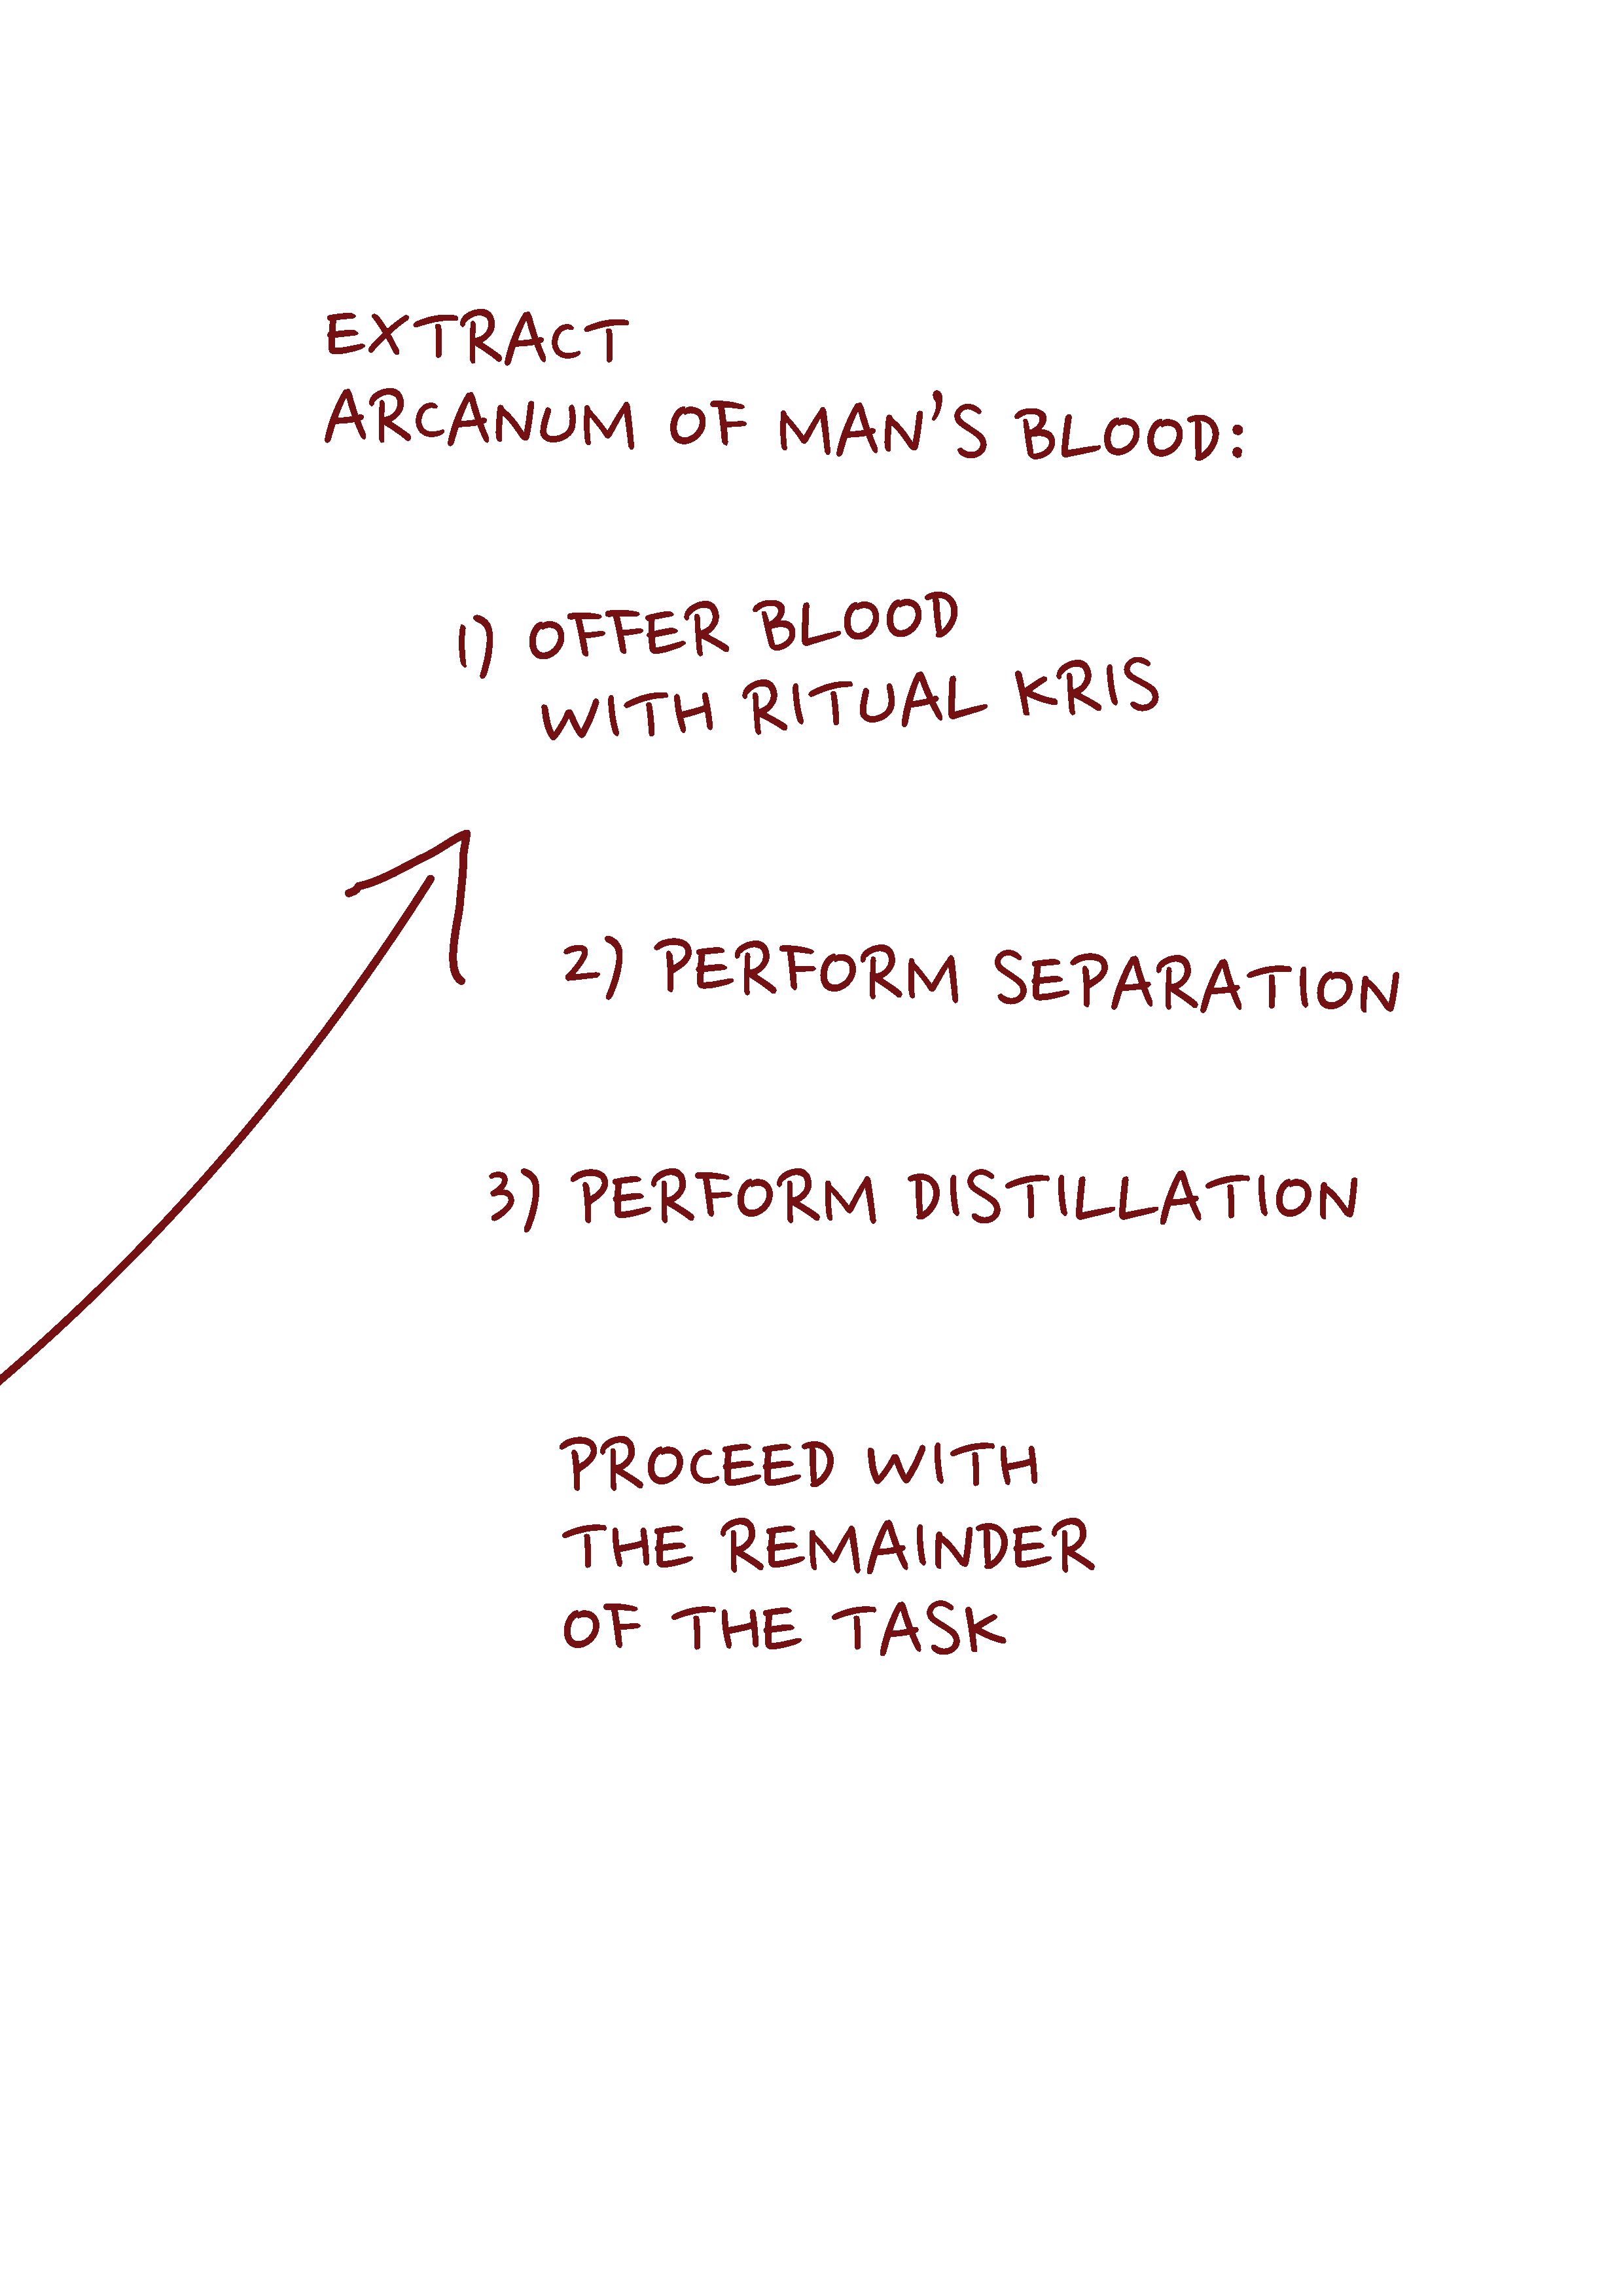 EXTRACT
ARCANUM OF MAN'S BLOOD:
1) OFFER BLOOD
WITH RITUAL KRIS
2) PERFORM SEPARATION
3) PERFORM DISTILLATION
PROCEED WITH
THE REMAINDER
OF THE TASK